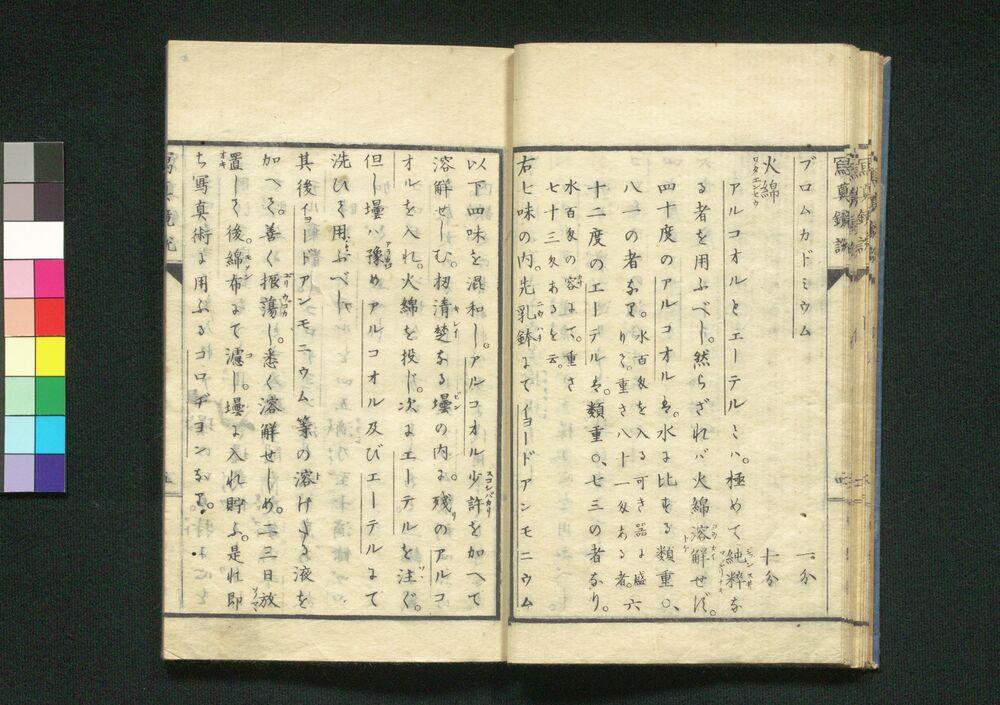 ブロムカドミウム 一分
火綿 十分
アルコオルとエーテルとハ。極めて純粋な
る者を用ふべし。然らざれバ火綿溶解せず。
四十度のアルコオルは。水に比する類重〇、
八一の者なり。水百匁を入る可き器に盛
りて。重さ八十一匁ある者。六
十二度のエーテルは。類重〇、七三の者なり。
水百匁の容にて。重さ
七十三匁あるを云。
右七味の内。先乳鉢にてイヨードアンモニウム
以下四味を混和し。アルコオル少許を加へて
溶解せしむ。扨清楚なる壜の内に。残りのアルコ
オルを入れ。火綿を投じ。次にエーテルを注ぐ。
但し壜ハ豫めアルコオル及びエーテルにて
洗ひて用ふべし
其後イヨードアンモニウム等の溶けたる液を
加へて。善く振蕩し。悉く溶解せしめ。二三日放
置して後綿布にて濾し。壜に入れ貯ふ。是れ即
ち写真術に用ふるコロヂヨンなり。
寫真鏡説